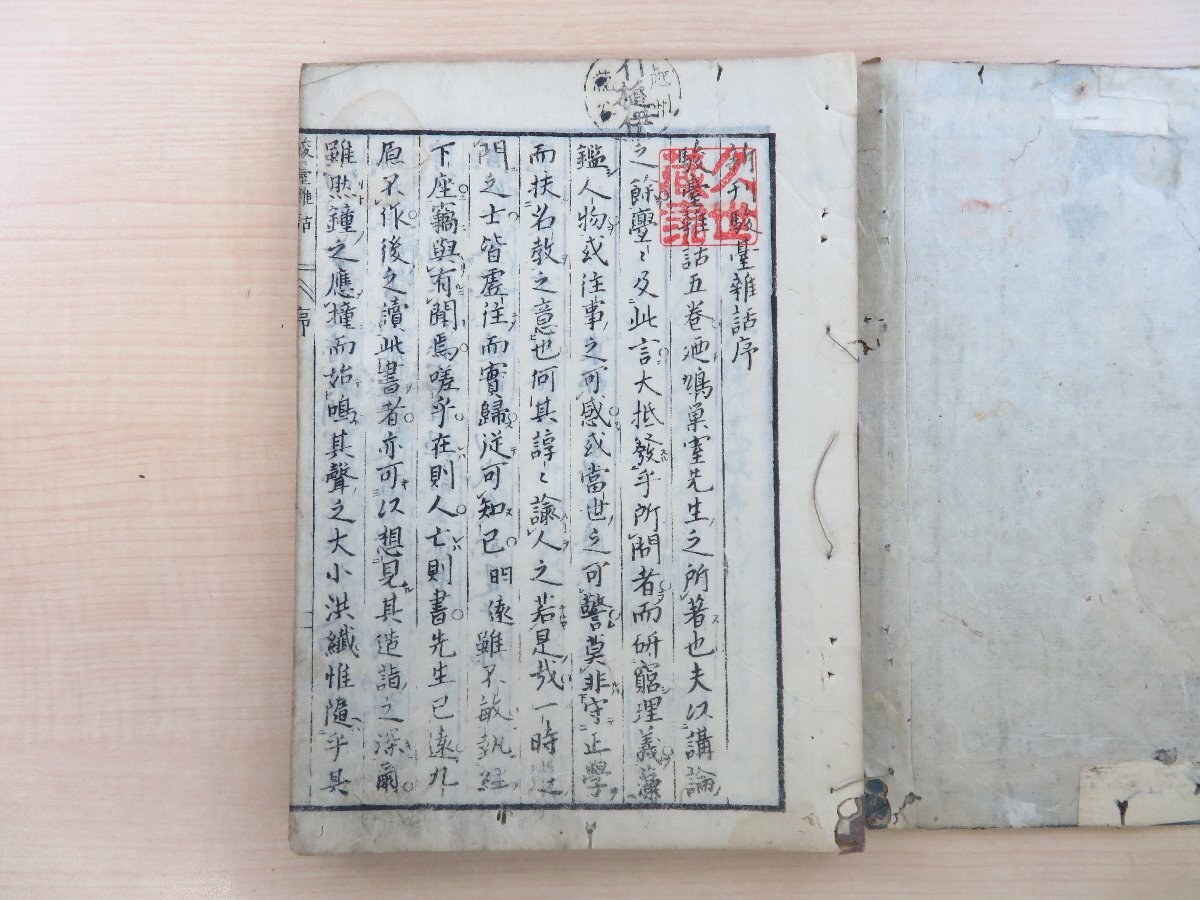 新刊駿臺雜話序
駿臺雜話五巻迺鳩巣室先生之所著也夫以講論
之餘亹〻及此言大抵發乎所問者而研窮理義藻
鑑人物或往事之可感或當世之可警莫非守正學
而扶名教之意也何其諄〻諭人之若是哉一時
門之士皆虚往而實歸従可知已明遠雖不敏執經
下座竊與有聞焉嗟乎在則人亡則書先生已遠九
原不作後之讀此書者亦可以想見其造詣之深爾
雖然鐘之應撞而始鳴其聲之大小洪纖惟隨乎其
駿臺雜話
序
久世
蔵